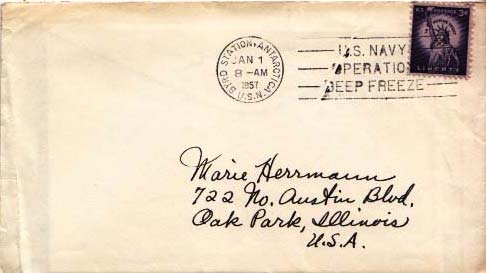 BYRD STATION, ANTARCTICA
JAN 1
8-AM
1957
U.S. NAVY
OPERATION
DEEP FREEZE
U.S. POSTAGE 3¢
LIBERTY
Marie Herrmann
722 No. Austin Blvd.
Oak Park, Illinois
U.S.A.